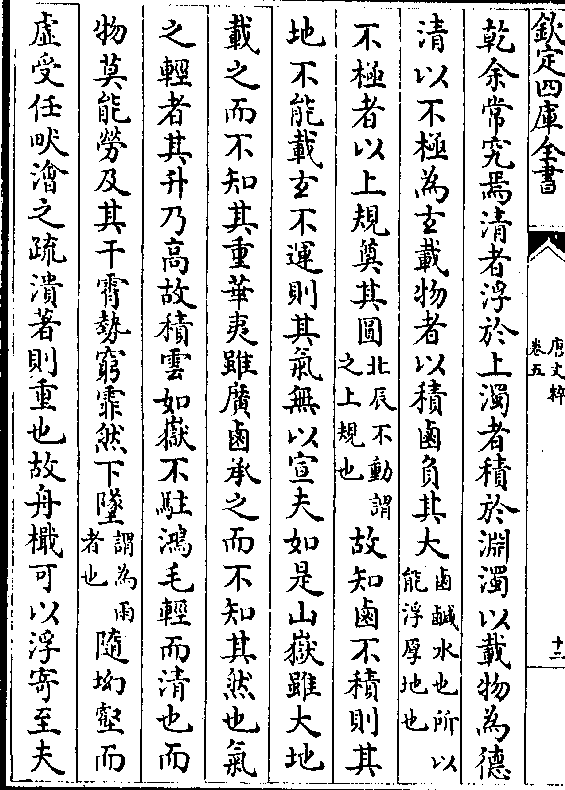 欽定四庫全書
唐文粹
卷五
十二
乾余常究焉清者浮於上濁者積於淵濁以載物為德
清以不極為𤣥載物者以積鹵負其大鹵鹹水也所以能浮厚地也
不極者以上規奠其圓北辰不動謂之上規也故知鹵不積則其
地不能載𤣥不運則其氣無以宣夫如是山嶽雖大地
載之而不知其重華夷雖廣鹵承之而不知其然也氣
之輕者其升乃高故積雲如嶽不駐鴻毛輕而清也而
物莫能勞及其干霄勢窮霏然下墜謂為雨者也隨坳壑而
虛受任畎澮之疏潰著則重也故舟檝可以浮寄至夫